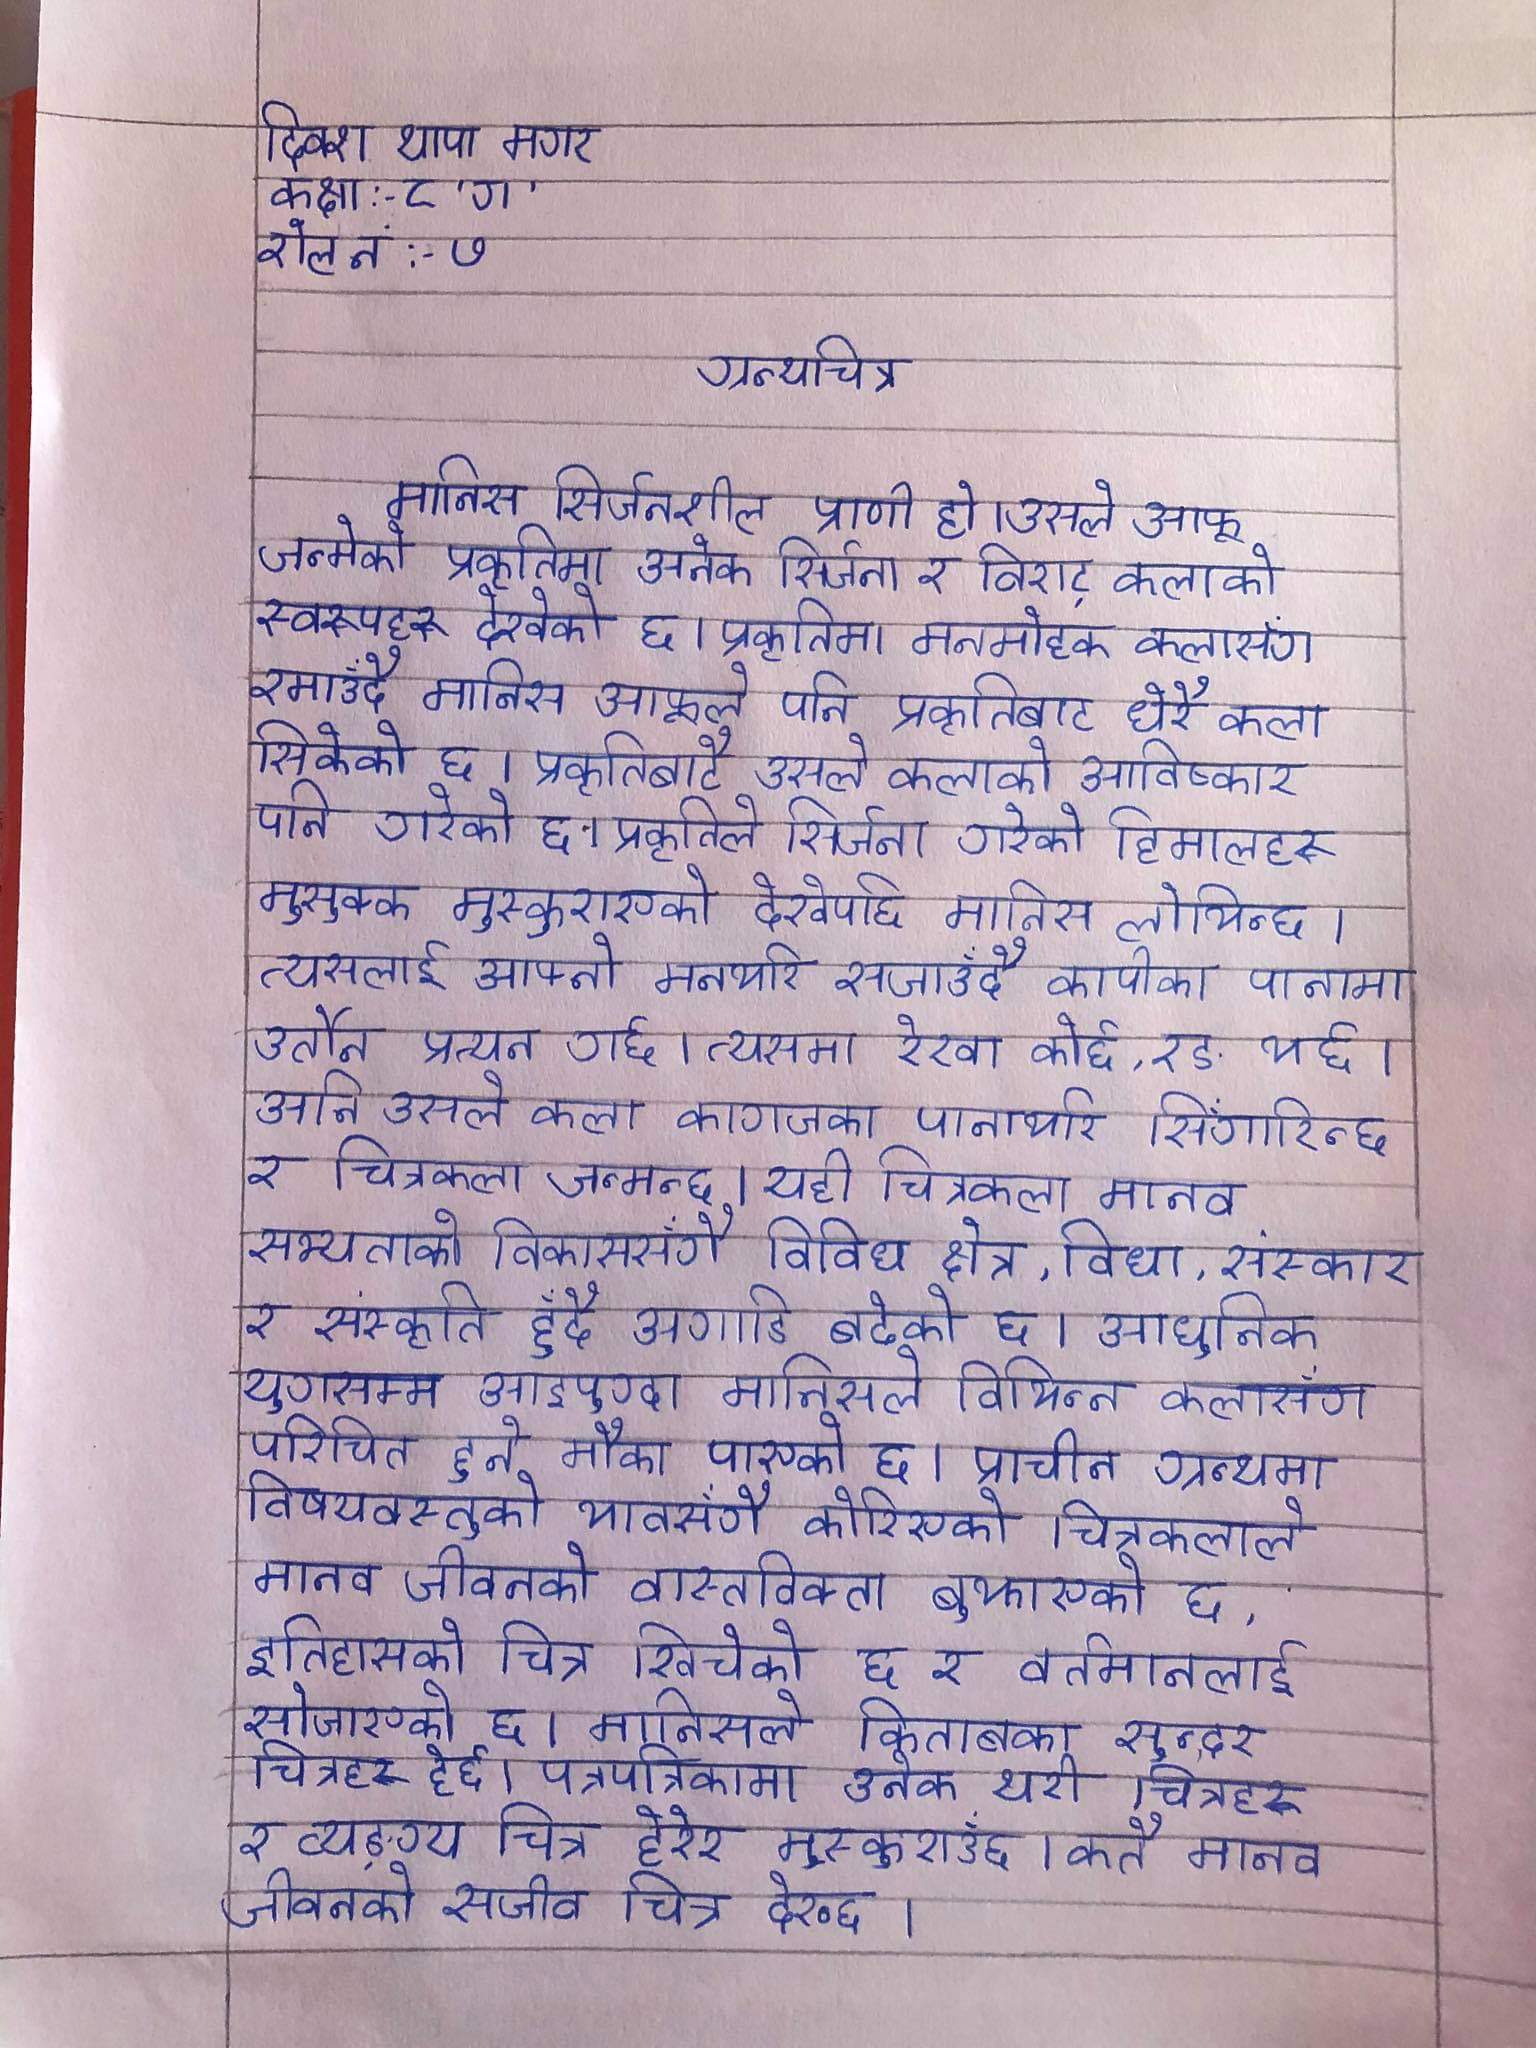 दिक्श थापा मगर
कक्षा :- ८ 'ग'
रोल नं :- ७
ग्रन्थचित्र
मानिस सिर्जनशील प्राणी हो । उसले आफू
जन्मेको प्रकृतिमा अनेक सिर्जना र विराट् कलाको
स्वरूपहरू देखेको छ । प्रकृतिमा मनमोहक कलासँग
रमाउँदै मानिस आफूले पनि प्रकृतिबाट धेरै कला
सिकेको छ । प्रकृतिबाटै उसले कलाको आविष्कार
पनि गरेको छ । प्रकृतिले सिर्जना गरेको हिमालहरू
मुसुक्क मुस्कुराएको देखेपछि मानिस लोभिन्छ ।
त्यसलाई आफ्नो मनभरि सजाउँदै कापीका पानामा
उर्तान प्रत्यन गर्छ । त्यसमा रेखा कोर्छ, रङ भर्छ ।
अनि उसले कला कागजका पानाभरि सिँगारिन्छ
र चित्रकला जन्मन्छ । यही चित्रकला मानव
सभ्यताको विकाससँगै विविध क्षेत्र, विधा, संस्कार
र संस्कृति हुँदै अगाडि बढेको छ । आधुनिक
युगसम्म आइपुग्दा मानिसले विभिन्न कलासँग
परिचित हुने मौका पाएको छ । प्राचीन ग्रन्थमा
विषयवस्तुको भावसँगै कोरिएको चित्रकलाले
मानव जीवनको वास्तविक्ता बुझाएको छ,
इतिहासको चित्र खिचेको छ र वर्तमानलाई
सोजाएको छ । मानिसले किताबका सुन्दर
चित्रहरू हेर्छ । पत्रपत्रिकामा अनेक थरी चित्रहरू
र व्यङ्ग्य चित्र हेरेर मुस्कुराउँछ । कतै मानव
जीवनको सजीव चित्र देख्छ ।